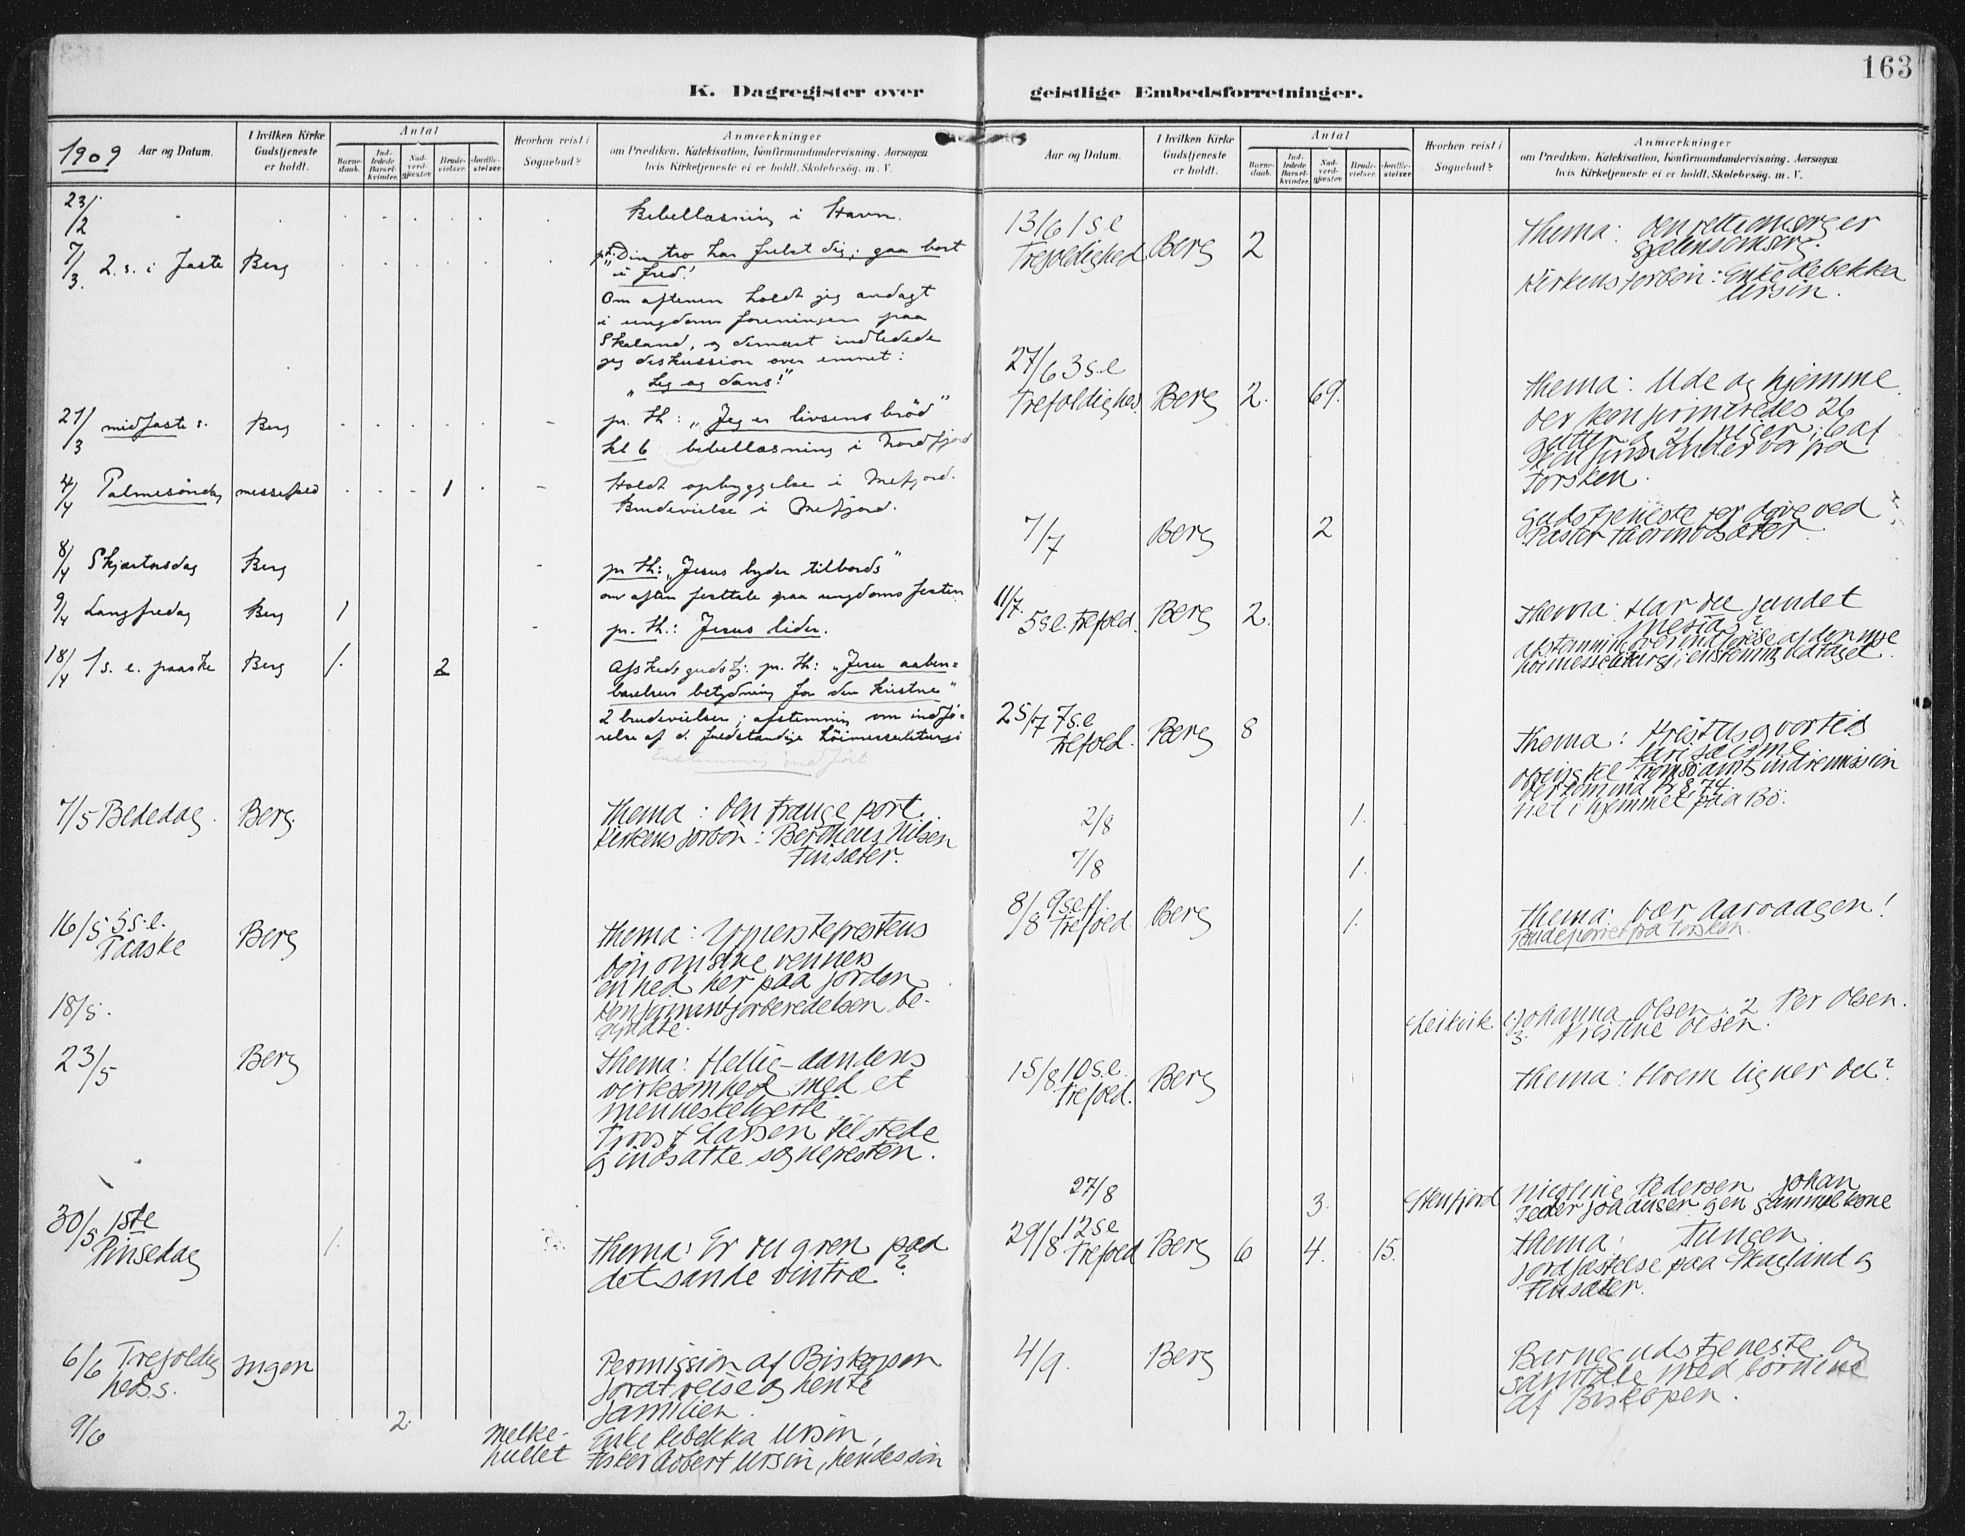 163
K. Dagregister over geistlige Embedsforretninger.
1909
Aar og Datum.
I hvilken Kirke Gudstjeneste er holdt.
Antal
Barnedaab.
Indledede Barselkvinder.
Nadverdgjester.
Brudevielser.
Jordfæstelser.
Hvorhen reist i Sognebud?
Anmærkninger
om Prædiken, Katekisation, Konfirmandundervisning, Aarsagen
hvis Kirketjeneste ei er holdt, Skolebesøg, m. V.
23/2 Bibellæsning i Havn.
7/3. 2. s. i faste Berg "Din tro har frelst dig; gaa bort
i fred!"
Om aftenen holdt jeg andagt
i ungdomsforeningen paa
Skaland, og dernæst indledede
jeg diskussion over emnet:
"Leg og dans!"
21/3 midfaste s. Berg pr. th: "Jeg er livsens brød"
kl 6 bibellæsning i Nordfjord
4/4 Palmesøndag messefald 1 Holdt opbyggelse i Mefjord.
Brudevielse i Mefjord.
8/4 Skjærtorsdag Berg pr. th: "Jesus byder tilbords"
om aften festtale paa ungdomsfesten
9/4 Langfredag Berg 1 pr. th.: Jesus lider.
18/4 1 s. e. paaske Berg 1. 2 Afskedsgudstj. pr. th: "Jesu aaben=
barelsers betydning for den kristne"
2 brudevielser; afstemning om indfø=
relse af d. fuldstændige höimesseliturgi
Enstemmig indført
7/5 Bededag. Berg. Thema: Den trange port.
Kirkens forbön: Bertheus Nilsen
Finsæter.
16/5 5 s. e. Paaske Berg Thema: Ypperstepræstens
bön om sine venners
enhed her paa jorden
18/5. Konfirmantforberedelsen be-
gyndte.
23/5 Berg Thema: Hellig-aandens
virksomhed med et
menneskehjerte.
Provst Larsen tilstede
og indsatte sognepresten.
30/5 1ste Pinsedag 1. Thema: Er du gren paa
det sande vintræ?
6/6 Trefoldigheds s. Ingen Permission af Biskopen
for at reise og hente
familien.
9/6 2. Melkehullet Enke Rebekka Ursin,
Fisker Albert Ursin, hendes sön
Aar og Datum.
I hvilken Kirke Gudstjeneste er holdt.
Antal
Barnedaab.
Indledede Barselkvinder.
Nadverdgjester.
Brudevielser.
Jordfæstelser.
Hvorhen reist i Sognebud?
Anmærkninger
om Prædiken, Katekisation, Konfirmandundervisning, Aarsagen
hvis Kirketjeneste ei er holdt, Skolebesøg, m. V.
13/6 1 s. e Trefoldighed Berg 2 Thema: Den rette omsorg er
sjælens omsorg.
Kirkens forbön: Enke Rebekka
Ursin.
27/6 3 s. e Trefoldighed. Berg 2. 69. Thema: Ude og hjemme
Der konfirmeredes 26
gutter og 21 piger; 6 af
konfirmander var fra
Torsken.
7/7 Berg 2 Gudstjeneste ved
Pastor
11/7. 5 s. e. Trefold. Berg 2. Thema: Har du fundet
Mesias?
Afstemning over indförelse af den nye
höimesseliturgi; enstemmig vedtaget.
25/7 7 s. e Trefold. Berg 8 Thema: Kristus og vor tids
farisæisme
Offer til Tromsö amts indremission
der kom ind Kr 8,74.
2/8 1. Viet i hjemmet paa Bö.
7/8 1.
8/8 9 s. eft. Trefold. Berg 1. Thema: Vær aarvaagen!
Brudeparret fra Torsken.
Leikvik 1) Johanna Olsen. 2 Per Olsen.
3. Kristine Olsen.
15/8 10 s. e. Trefold. Berg Thema: Hvem ligner du?
27/8 3. Stenfjord Nicoline Pedersen Johan
Peder Johansen gammel kone
29/8 12 s e Trefold Berg 6 4. 15. Thema: Tungen
Jordfæstelse paa Skaland og
Finsæter.
4/9. Berg Barnegudstjeneste og
samtale med börnene
af Biskopen.